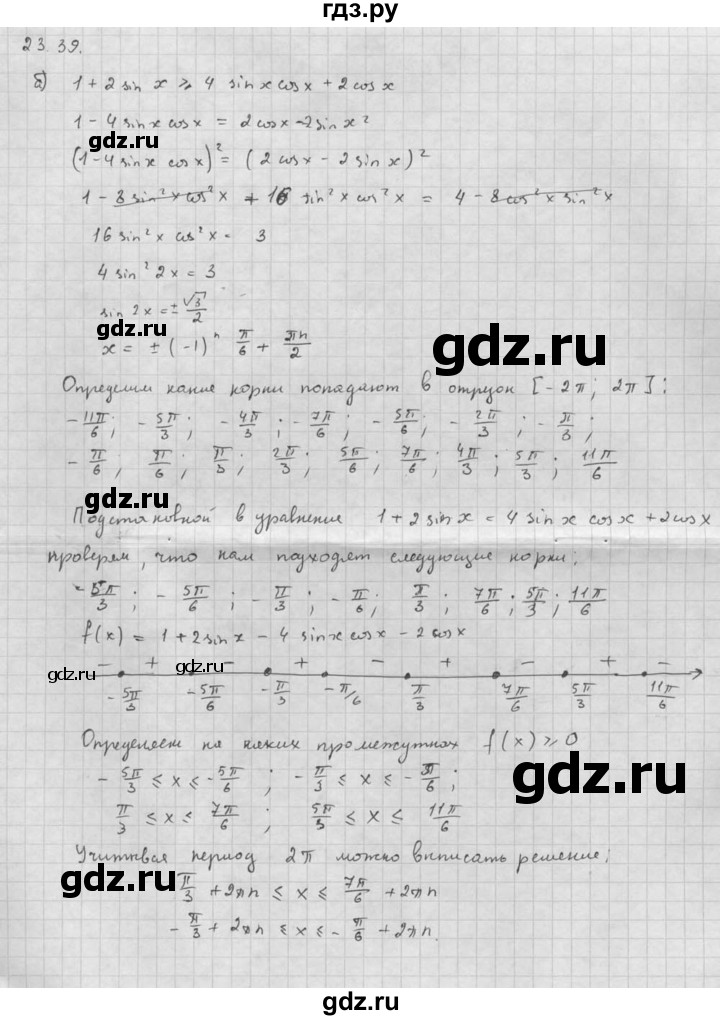 гдз.ру
23.39.
б) 1 + 2 sin x ⩾ 4 sin x cos x + 2 cos x
1 - 4 sin x cos x = 2 cos x - 2 sin x²
gdz.ru
(1 - 4 sin x cos x)² = (2 cos x - 2 sin x)²
1 - 8 sin² x cos² x + 16 sin² x cos² x = 4 - 8 cos² x sin² x
16 sin² x cos² x = 3
4 sin² 2x = 3
sin 2x = ± √3/2
gdz.ru
x = ± (-1)ⁿ π/6 + πn/2
gdz.ru
Определим какие корни попадают в отрезок [-2π; 2π]:
-11π/6; -5π/3; -4π/3; -7π/6; -5π/6; -2π/3; -π/3;
-π/6; π/6; π/3; 2π/3; 5π/6; 7π/6; 4π/3; 5π/3; 11π/6
gdz.ru
Подстановкой в уравнение 1 + 2 sin x = 4 sin x cos x + 2 cos x
проверяем, что нам подходят следующие корни:
-5π/3; -5π/6; -π/3; -π/6; π/3; 7π/6; 5π/3; 11π/6
f(x) = 1 + 2 sin x - 4 sin x cos x - 2 cos x
gdz.ru gdz.ru
- + - + - + - + -
-5π/3 -5π/6 -π/3 -π/6 π/3 7π/6 5π/3 11π/6
Определяем на каких промежутках f(x) ⩾ 0
gdz.ru
-5π/3 ⩽ x ⩽ -5π/6; -π/3 ⩽ x ⩽ -π/6;
π/3 ⩽ x ⩽ 7π/6; 5π/3 ⩽ x ⩽ 11π/6
Учитывая период 2π можно выписать решение:
gdz.ru
π/3 + 2πn ⩽ x ⩽ 7π/6 + 2πn
-π/3 + 2πn ⩽ x ⩽ -π/6 + 2πn
gdz.ru